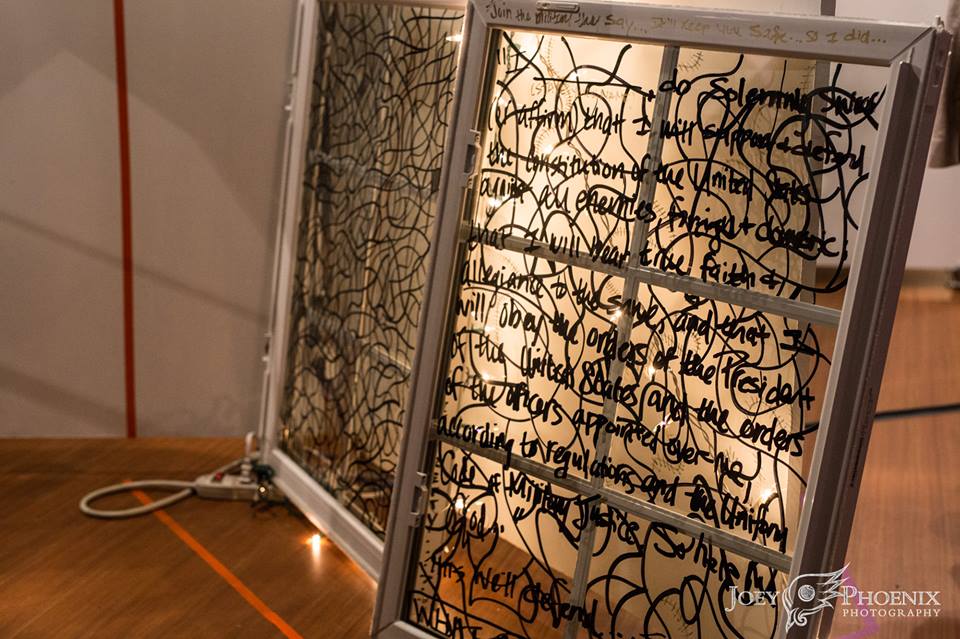 Join the military they say... I'll keep you safe... so I did...
"I, ________, do Solemnly Swear
(or affirm) that I will support + defend
the constitution of the United States
against all enemies, foreign + domestic;
that I will bear true faith +
allegiance to the same; and that I
will obey the orders of the President
of the United States and the orders
of the officers appointed over me,
according to regulations and the Uniform
Code of Military Justice. So help me
God..."
I will defend
WHAT
JOEY PHOENIX
PHOTOGRAPHY